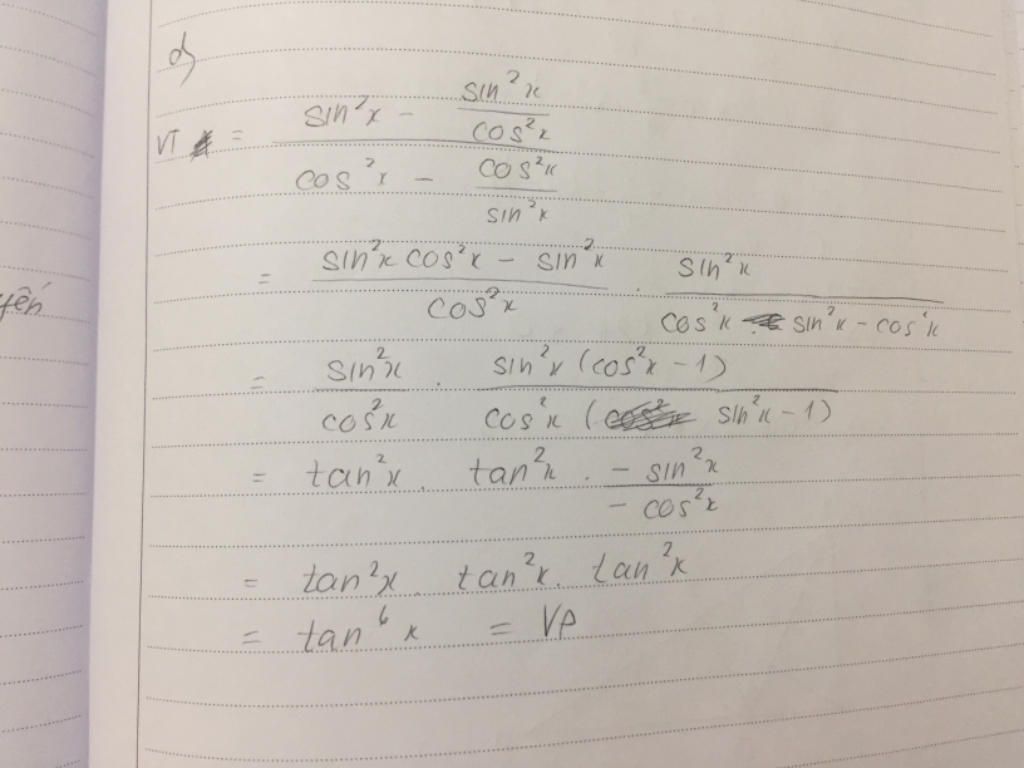 d)
VT = \frac{sin²x - \frac{sin²x}{cos²x}}{cos²x - \frac{cos²x}{sin²x}}
= \frac{sin²x cos²x - sin²x}{cos²x} . \frac{sin²x}{cos²x . sin²x - cos²x}
yến
= \frac{sin²x}{cos²x} . \frac{sin²x (cos²x - 1)}{cos²x (sin²x - 1)}
= tan²x . tan²x . \frac{- sin²x}{- cos²x}
= tan²x . tan²x . tan²x
= tan⁶x = VP